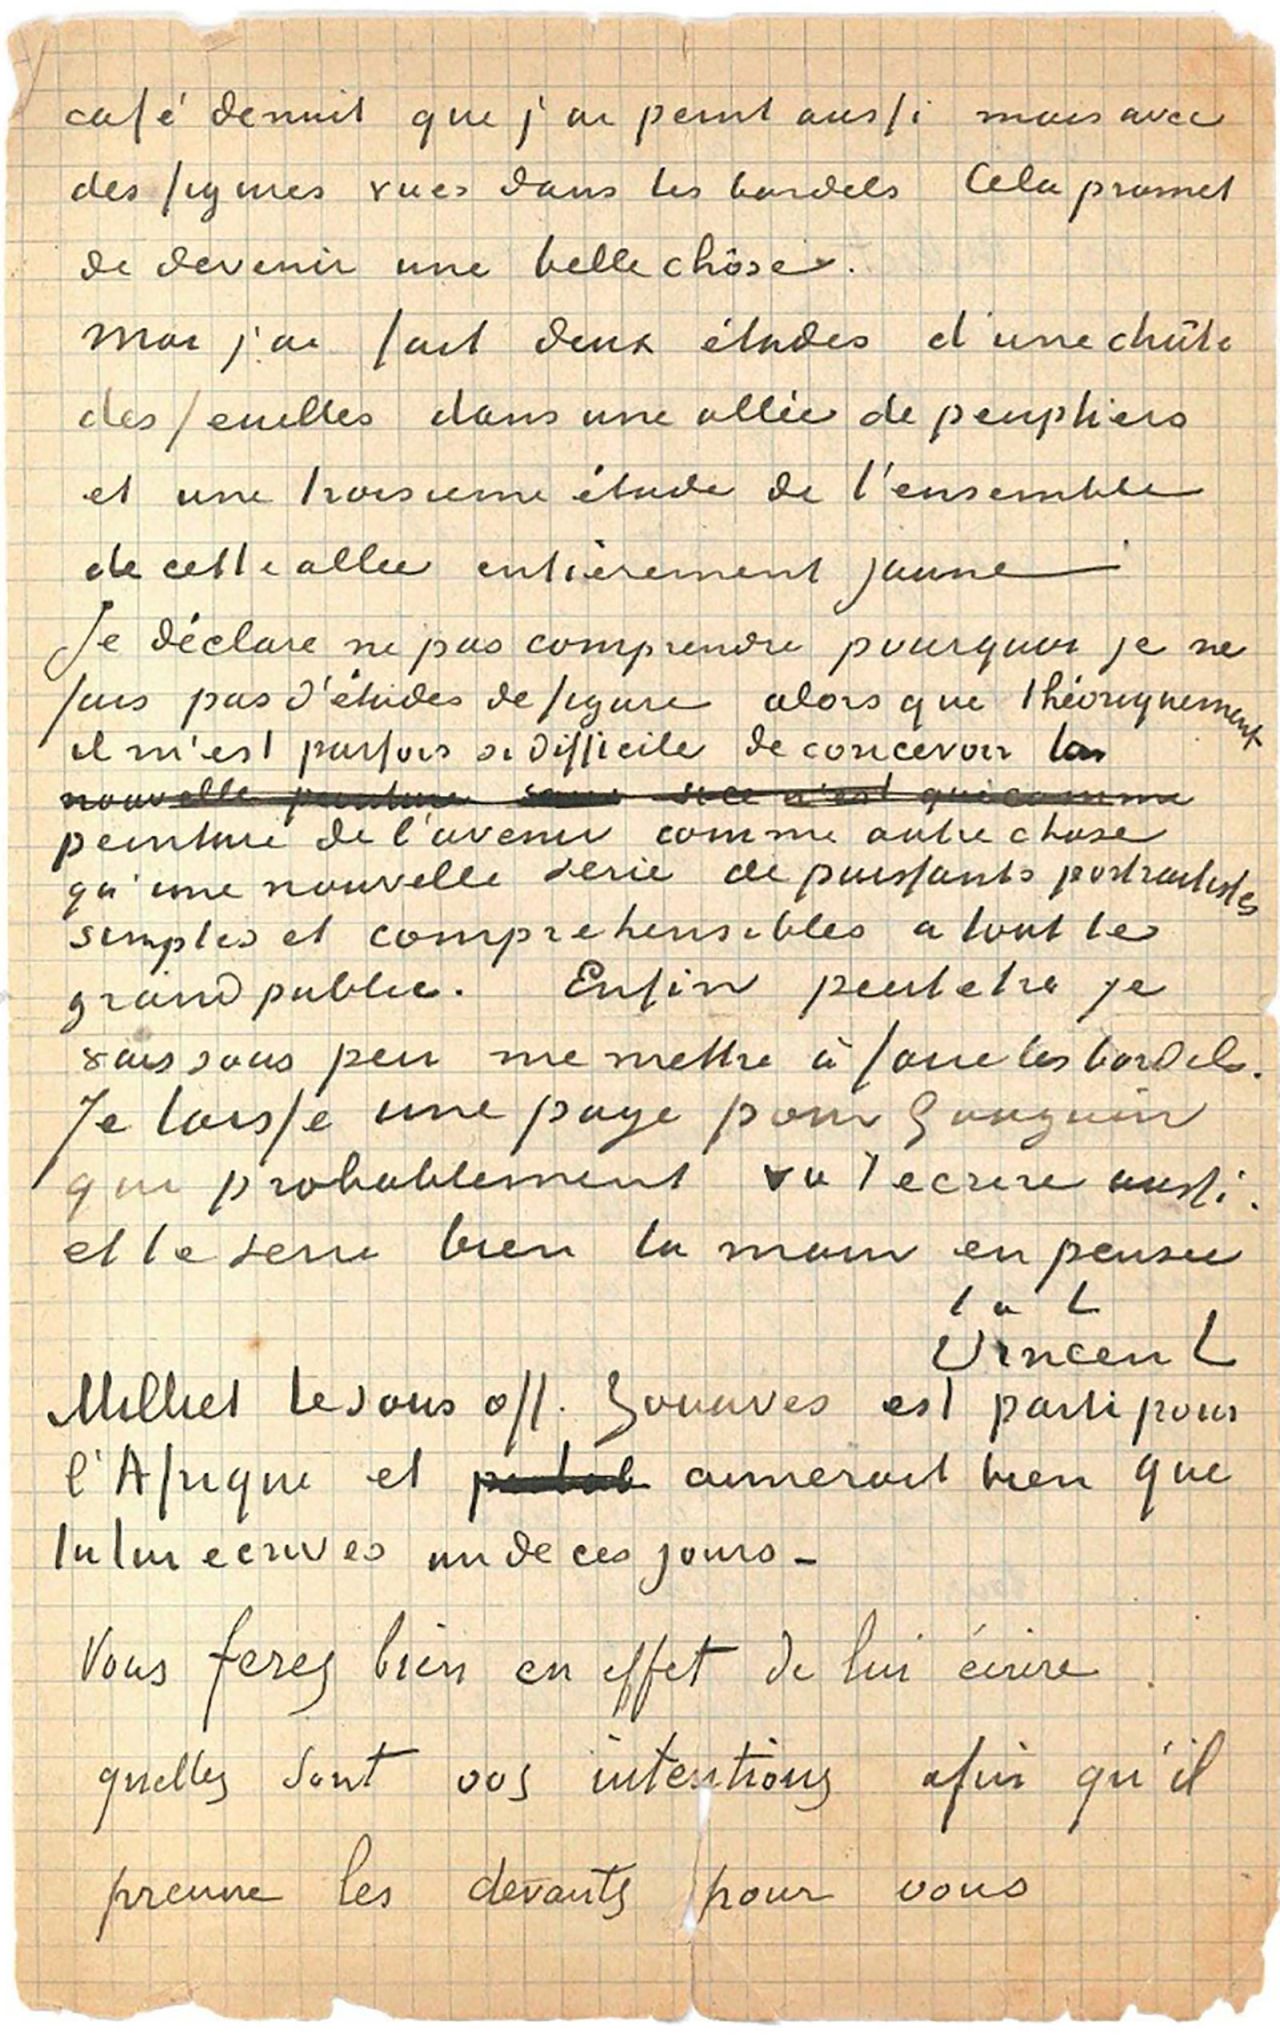 café de nuit que j'ai peint aussi mais avec
des figures vues dans les bordels Cela promet
de devenir une belle chôse.
moi j'ai fait deux études d'une chûte
des feuilles dans une allée de peupliers
et une troisieme étude de l'ensemble
de cette allee entièrement jaune
Je déclare ne pas comprendre pourquoi je ne
fais pas d'études de figure alors que théoriquement
il m'est parfois si difficile de concevoir la
nouvelle peinture sans si ce n'est que comme
peinture de l'avenir comme autre chose
qu'une nouvelle serie de puissants portraitistes
simples et comprehensibles a tout le
grand public. Enfin peut etre je
vais sous peu me mettre à faire les bordels.
Je laisse une page pour Gauguin
qui probablement va t'ecrire aussi.
et te serre bien la main en pensee
t. à t.
Vincent
Milliet le sous off. Zouaves est parti pour
l'Afrique et aimerait bien que
tu lui ecrives un de ces jours –
Vous ferez bien en effet de lui écrire
quelles sont vos intentions afin qu'il
prenne les devants pour vous